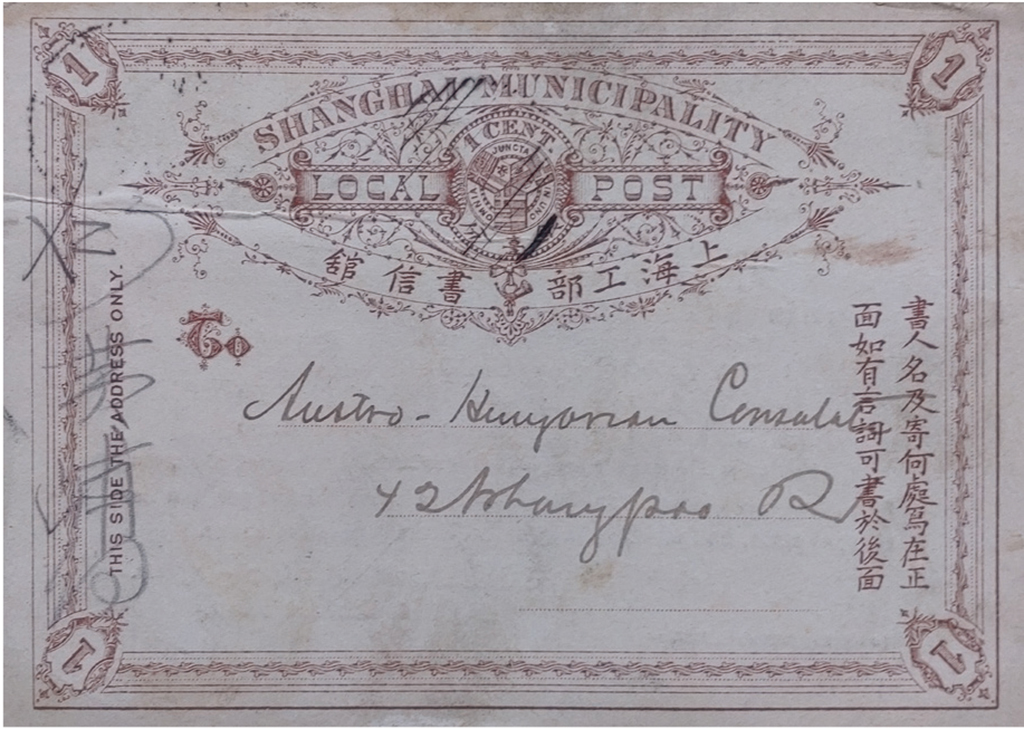 SHANGHAI MUNICIPALITY
1 CENT
OMNIA JUNCTA IN UNO
LOCAL POST
上海工部書信館
To
Austro-Hungarian Consulat
42 Whangpoo R
書人名及寄何處寫在正
面如有言詞可書於後面
THIS SIDE THE ADDRESS ONLY.
1
1
1
1